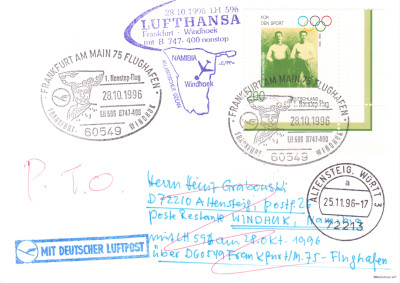 28.10.1996 LH 596
LUFTHANSA
Frankfurt - Windhoek
mit B 747-400 nonstop
NAMIBIA
Windhoek
FÜR
DEN SPORT
DEUTSCHLAND
FRANKFURT AM MAIN 75 FLUGHAFEN
1. Nonstop-Flug
28.10.1996
LH 596 D747-400
FRANKFURT - WINDHOEK
60549
FRANKFURT AM MAIN 75 FLUGHAFEN
1. Nonstop-Flug
28.10.1996
LH 596 D747-400
FRANKFURT - WINDHOEK
60549
P.T.O.
ALTENSTEIG, WÜRTT 3
a
25.11.96-17
72213
Herrn Heinz Grabowski
D 72210 Altensteig, postf. 26
poste Restante WINDHUK, Namibia
mit LH 596 am 28. Okt. 1996
über DG0549 Frankfurt/M. 75 - Flughafen
MIT DEUTSCHER LUFTPOST